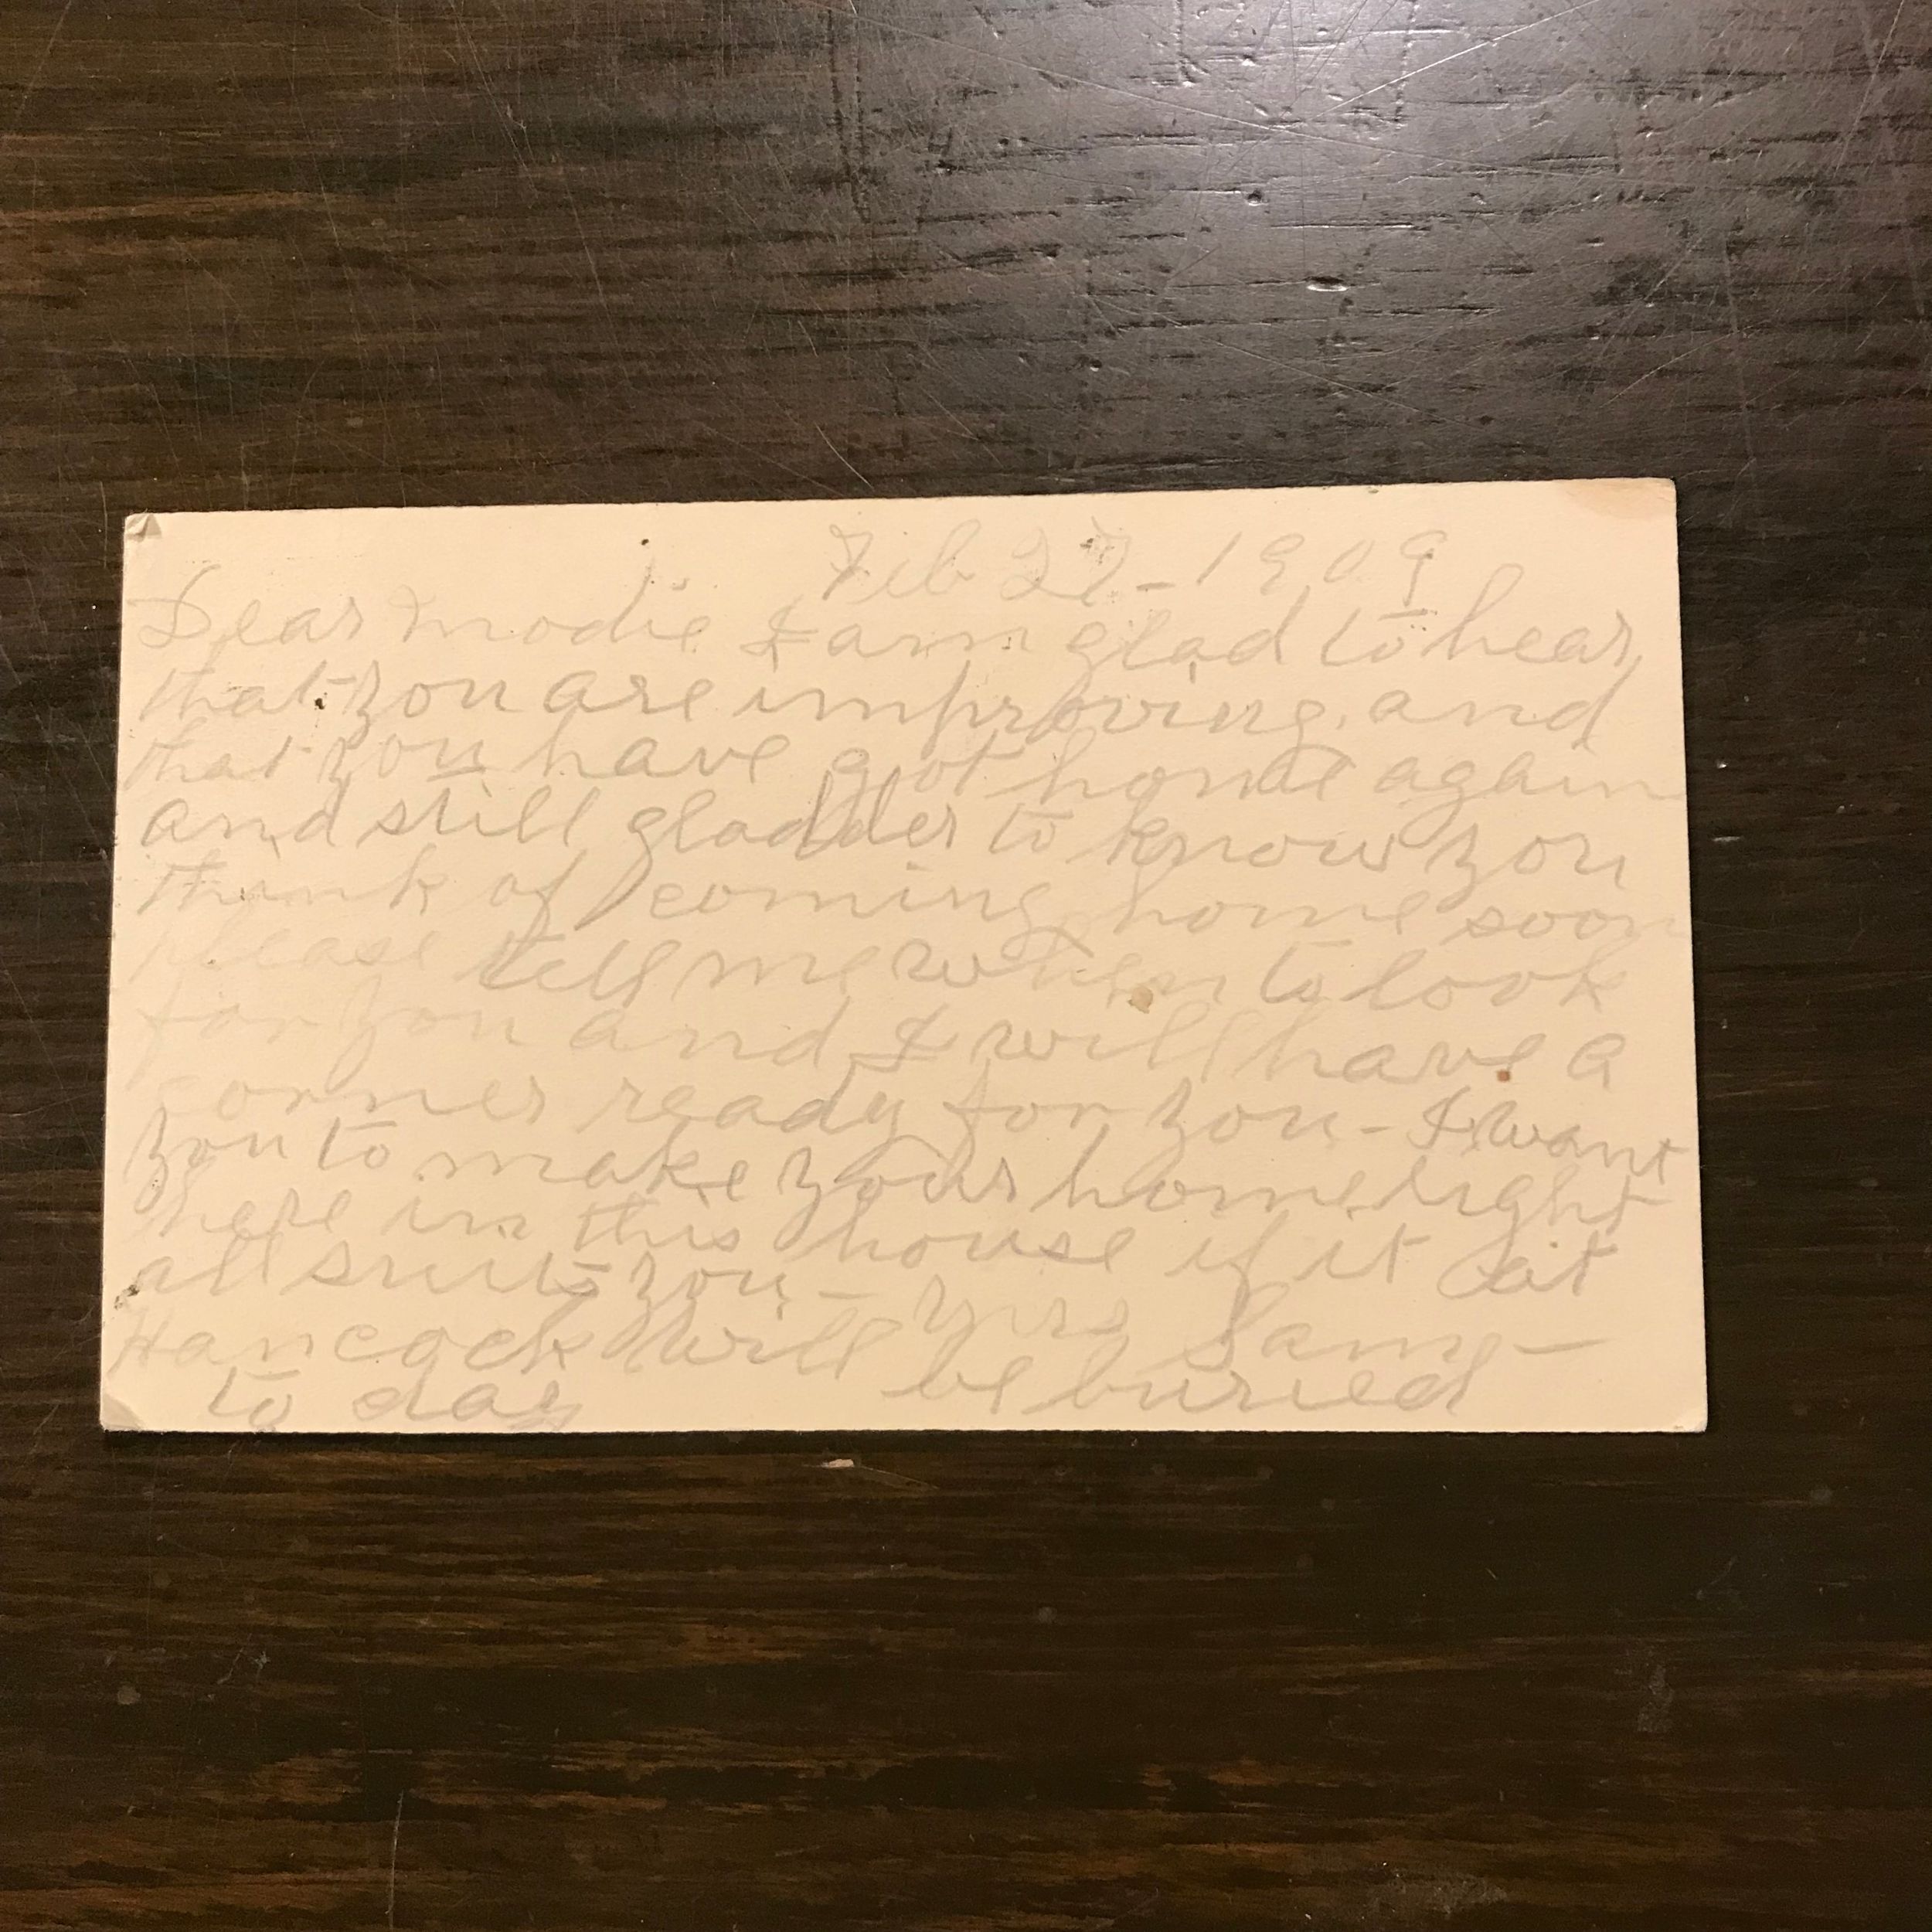 Feb 27-1909
Dear Modie I am glad to hear
that you are improving, and
that you have got home again
and still gladder to know you
think of coming home soon
please tell me when to look
for you and I will have a
corner ready for you - I want
you to make your home right
here in this house if it at
all suits you - yurs Sam -
Hancock will be buried
to day